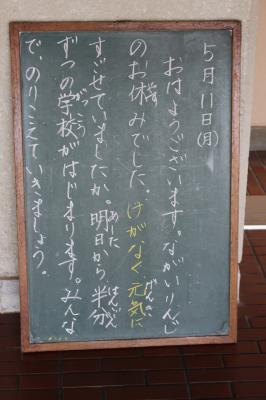 5月11日(月)
おはようございます。ながいりんじ
のお休みでした。けがなく元気に
すごせていましたか。明日から半分
ずつの学校がはじまります。みんな
で、のりこえていきましょう。